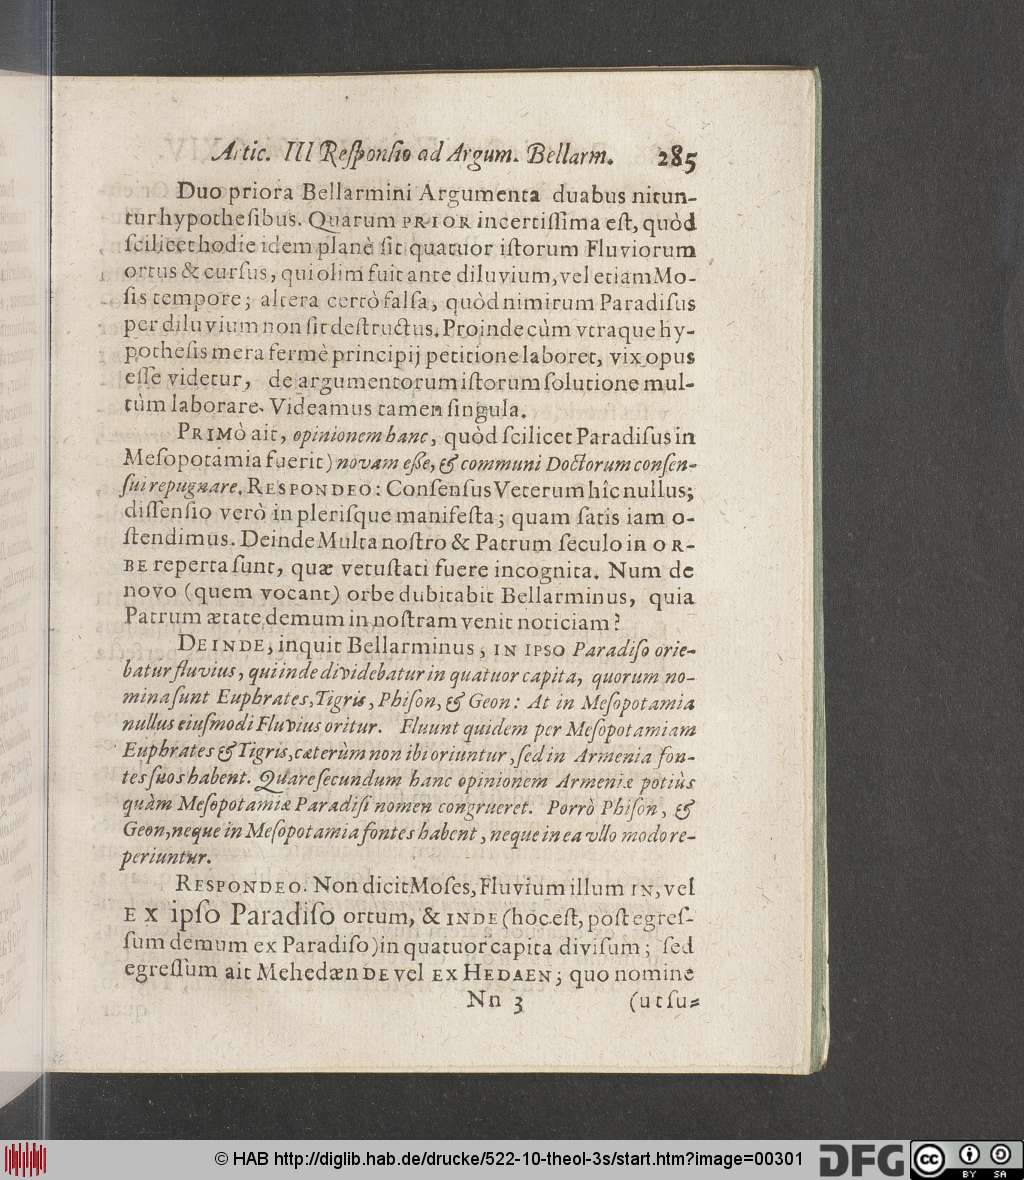 Artic. III Reſponſio ad Argum. Bellarm. 285
Duo priora Bellarmini Argumenta duabus nitun-
tur hypotheſibus. Quarum PRIOR incertiſſima eſt, quòd
ſcilicet hodie idem planè ſit quatuor iſtorum Fluviorum
ortus & curſus, qui olim fuit ante diluvium, vel etiam Mo-
ſis tempore; altera certò falſa, quòd nimirum Paradiſus
per diluvium non ſit deſtructus. Proinde cùm vtraque hy-
potheſis mera fermè principij petitione laboret, vix opus
eſſe videtur, de argumentorum iſtorum ſolutione mul-
tùm laborare. Videamus tamen ſingula.
PRIMÒ ait, opinionem hanc, quòd ſcilicet Paradiſus in
Meſopotamia fuerit) novam eſſe, & communi Doctorum conſen-
ſui repugnare. RESPONDEO: Conſenſus Veterum hîc nullus;
diſſenſio verò in pleriſque manifeſta; quam ſatis iam o-
ſtendimus. Deinde Multa noſtro & Patrum ſeculo in OR-
BE reperta ſunt, quæ vetuſtati fuere incognita. Num de
novo (quem vocant) orbe dubitabit Bellarminus, quia
Patrum ætate demum in noſtram venit noticiam?
DEINDE, inquit Bellarminus, IN IPSO Paradiſo orie-
batur fluvius, qui inde dividebatur in quatuor capita, quorum no-
mina ſunt Euphrates, Tigris, Phiſon, & Geon: At in Meſopotamia
nullus eiuſmodi Fluvius oritur. Fluunt quidem per Meſopotamiam
Euphrates & Tigris, cæterùm non ibi oriuntur, ſed in Armenia fon-
tes ſuos habent. Quare ſecundum hanc opinionem Armeniæ potiùs
quàm Meſopotamiæ Paradiſi nomen congrueret. Porrò Phiſon, &
Geon, neque in Meſopotamia fontes habent, neque in ea vllo modo re-
periuntur.
RESPONDEO. Non dicit Moſes, Fluvium illum IN, vel
EX ipſo Paradiſo ortum, & INDE (hoc eſt, poſt egreſ-
ſum demum ex Paradiſo) in quatuor capita diviſum; ſed
egreſſum ait Mehedæn DE vel EX HEDAEN; quo nomine
Nn 3 (ut ſu-
© HAB http://diglib.hab.de/drucke/522-10-theol-3s/start.htm?image=00301
DFG
cc BY SA